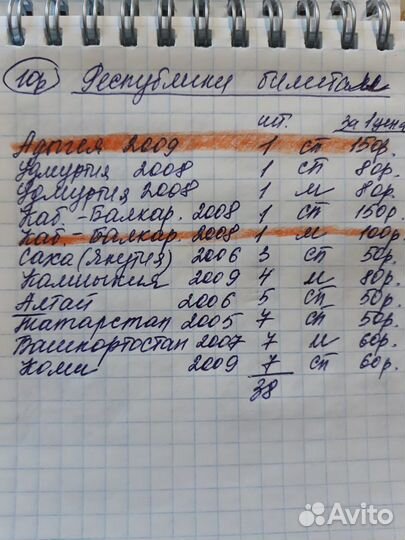 10р Республики биметалл
шт. за 1 цена
Адыгея 2009 1 СП 150р.
Удмуртия 2008 1 СП 80р.
Удмуртия 2008 1 М 80р.
Каб-Балкар. 2008 1 СП 150р.
Каб.-Балкар. 2008 1 М 100р.
Саха (Якутия) 2006 3 СП 50р.
Калмыкия 2009 4 М 80р.
Алтай 2006 5 СП 50р.
Татарстан 2005 7 СП 50р.
Башкортостан 2007 7 М 60р.
Коми 2009 7 СП 60р.
38
Avito